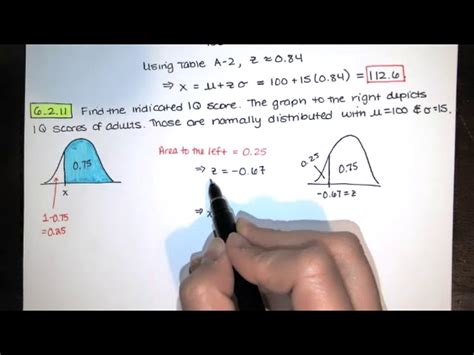 Using Table A-2, z ≈ 0.84
⇒ x = μ+zσ = 100+15(0.84) = 112.6
6.2.11 Find the indicated IQ score. The graph to the right depicts
IQ scores of adults. Those are normally distributed with μ=100 & σ=15.
0.75
x
1-0.75
=0.25
Area to the left = 0.25
⇒ z = -0.67
⇒ x
0.25
0.75
-0.67=z